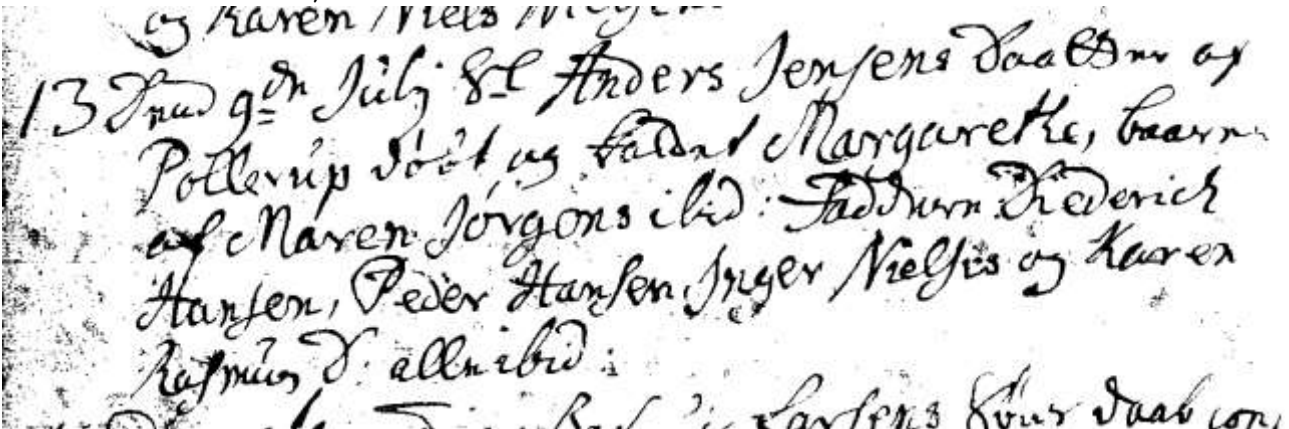 og Karen Niels
13 Dend 9dn Julij bl Anders Jensens Daatter af
Pollerup døbt og kaldet Margarethe, baaren
af Maren Jørgens ibid: Faddern Diederich
Hansen, Peder Hansen, Inger Nielses og Karen
Rasmus D: alle ibid:
Larsens daab con,